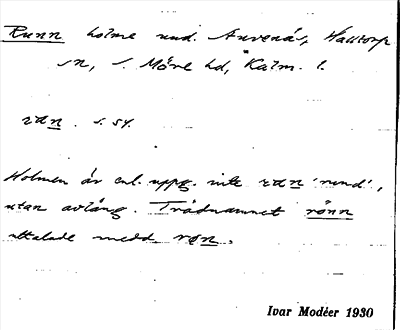 Runn holme und. Arvenäs, Halltorp
sn, S. Möre hd, Kalm. l.
ran. s. 54.
Holmen är enl. uppg. inte ran 'rund',
utan avlång. Trädnamnet rönn
uttalade medd. røn.
Ivar Modéer 1930